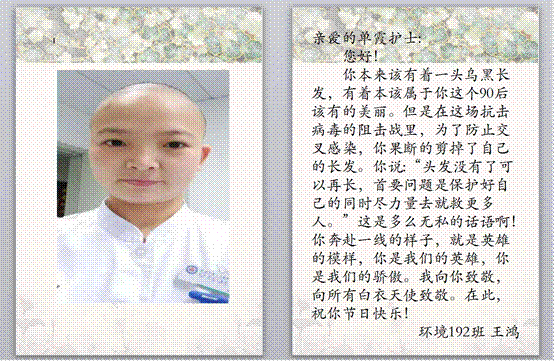 亲爱的单霞护士:
您好!
你本来该有着一头乌黑长
发，有着本该属于你这个90后
该有的美丽。但是在这场抗击
病毒的阻击战里，为了防止交
叉感染，你果断的剪掉了自己
的长发。你说:“头发没有了可
以再长，首要问题是保护好自
己的同时尽力量去就救更多
人。”这是多么无私的话语啊!
你奔赴一线的样子，就是英雄
的模样，你是我们的英雄，你
是我们的骄傲。我向你致敬，
向所有白衣天使致敬。在此，
祝你节日快乐!
环境192班 王鸿